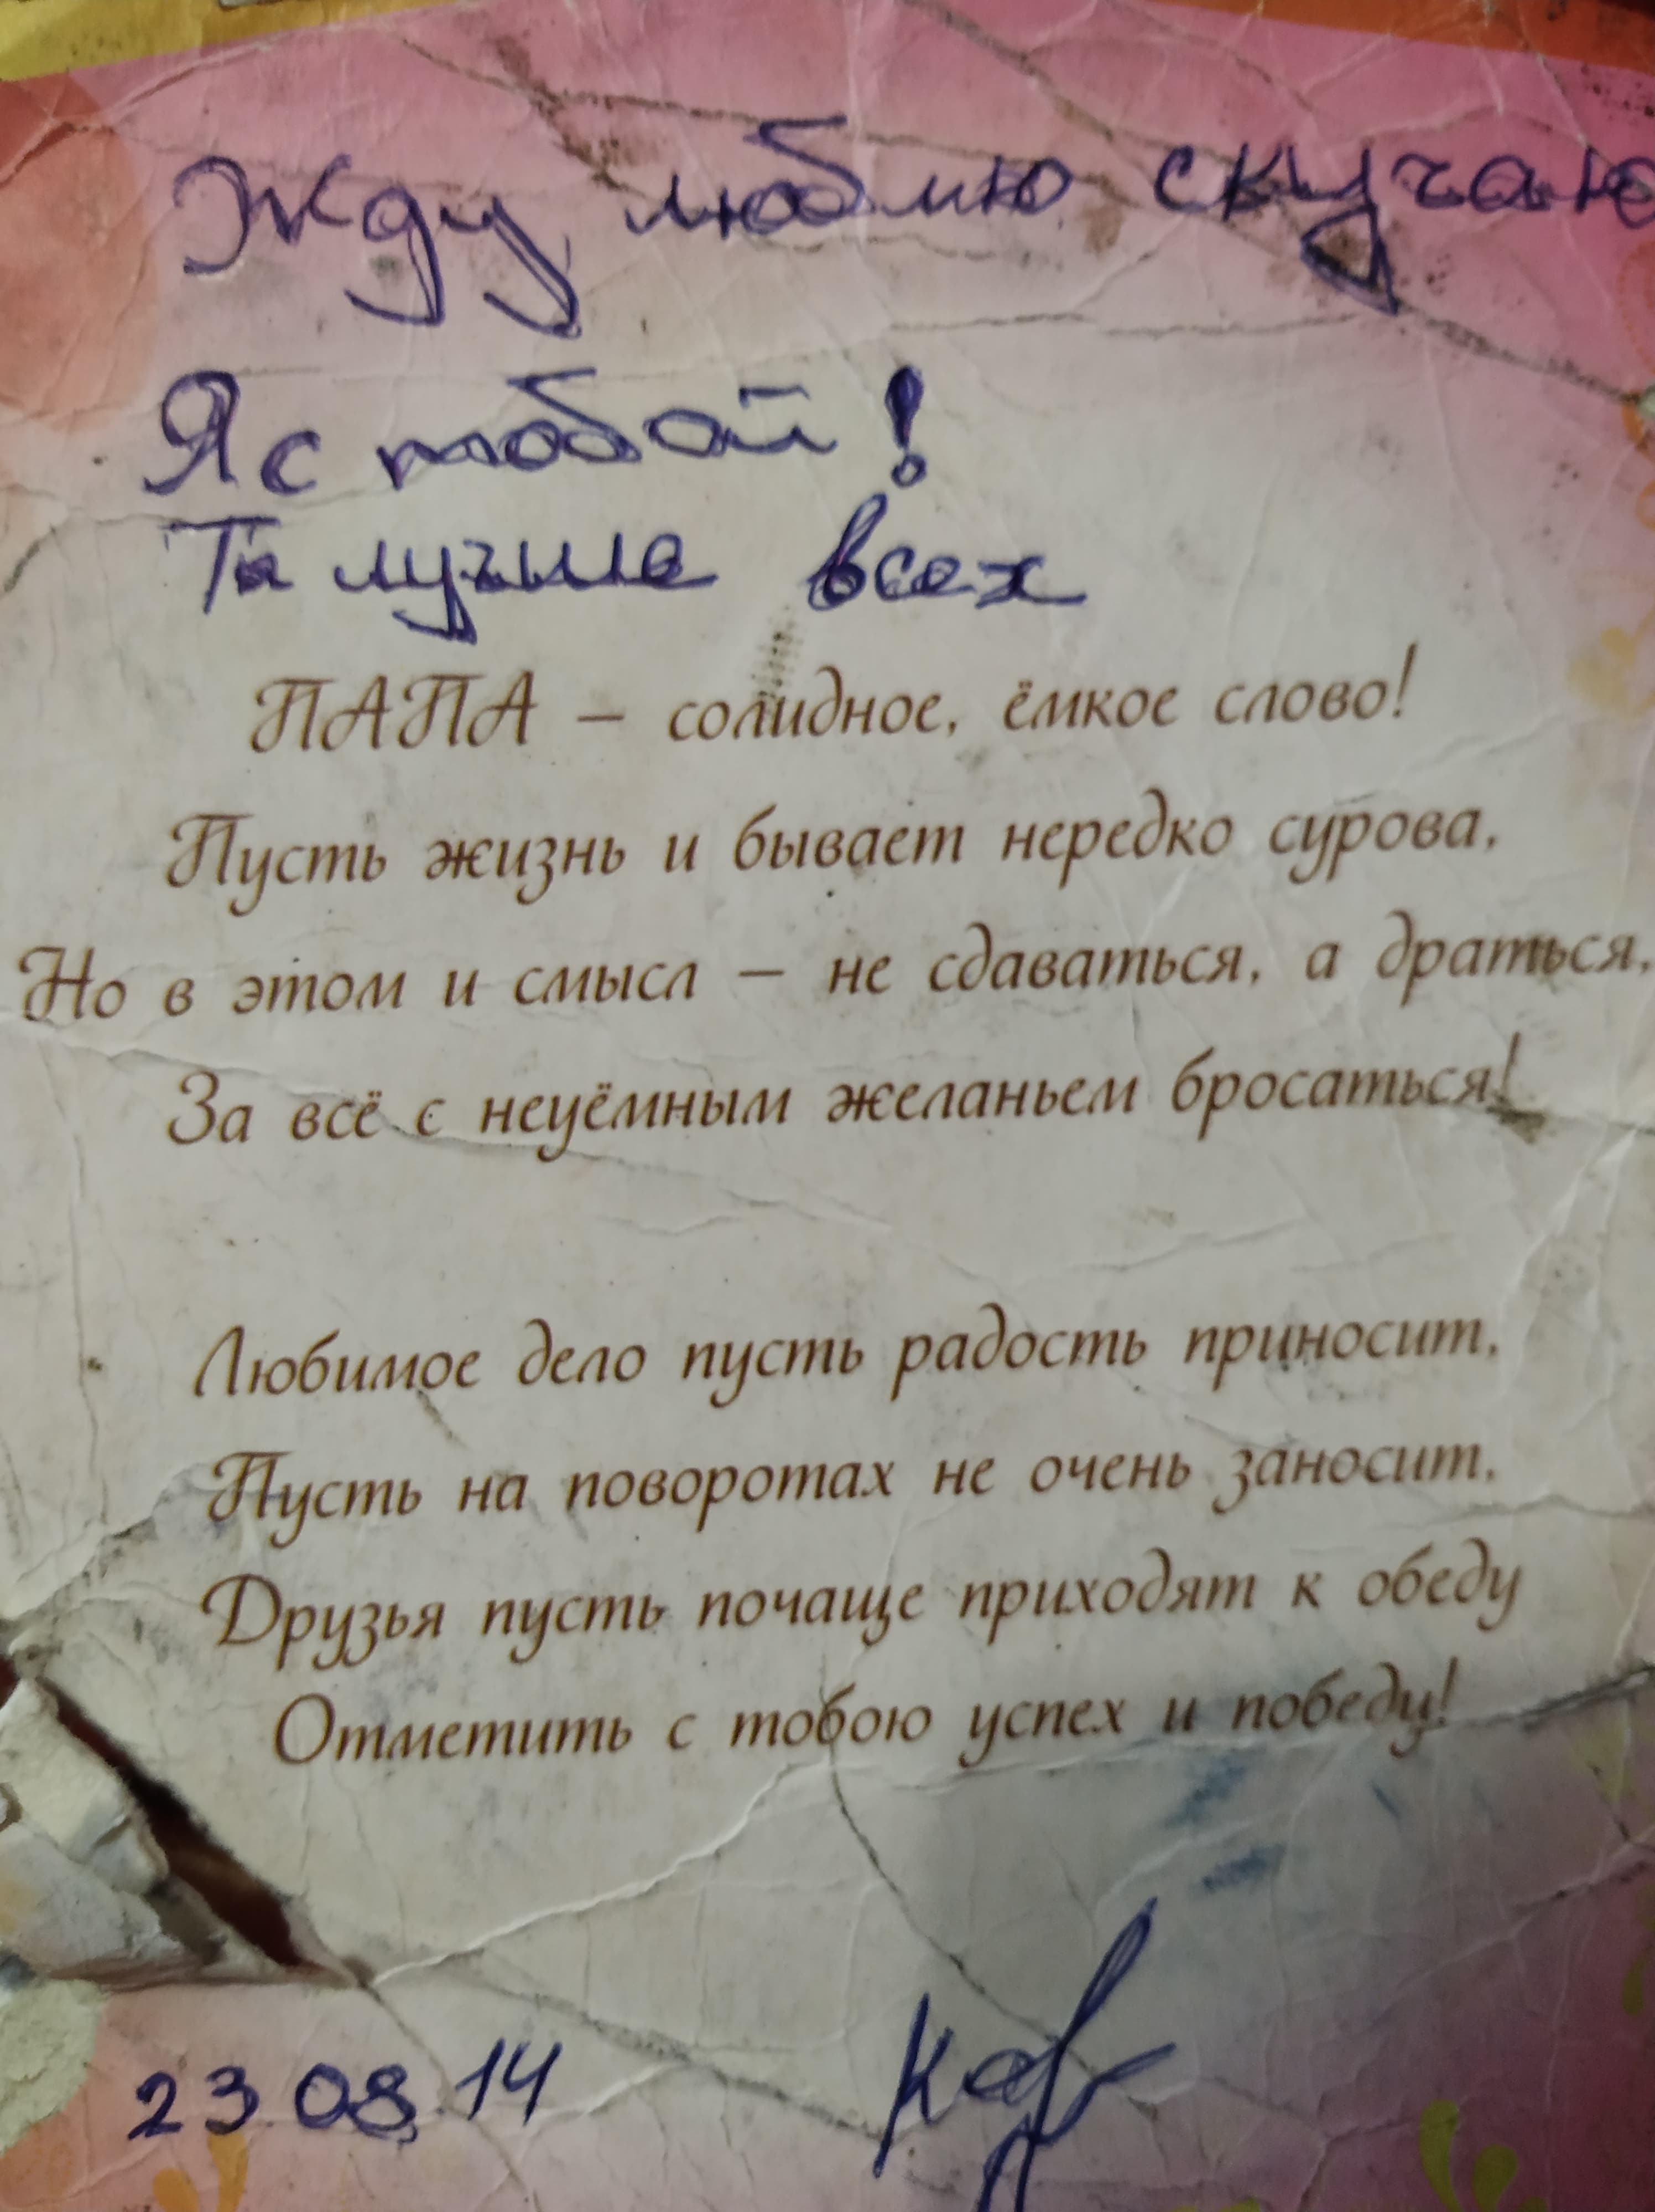 Жду люблю скучаю
Я с тобой!
Ты лучше всех
ПАПА – солидное, ёмкое слово!
Пусть жизнь и бывает нередко сурова,
Но в этом и смысл – не сдаваться, а драться,
За всё с неуёмным желаньем бросаться!
Любимое дело пусть радость приносит,
Пусть на поворотах не очень заносит,
Друзья пусть почаще приходят к обеду
Отметить с тобою успех и победу!
23 08 14